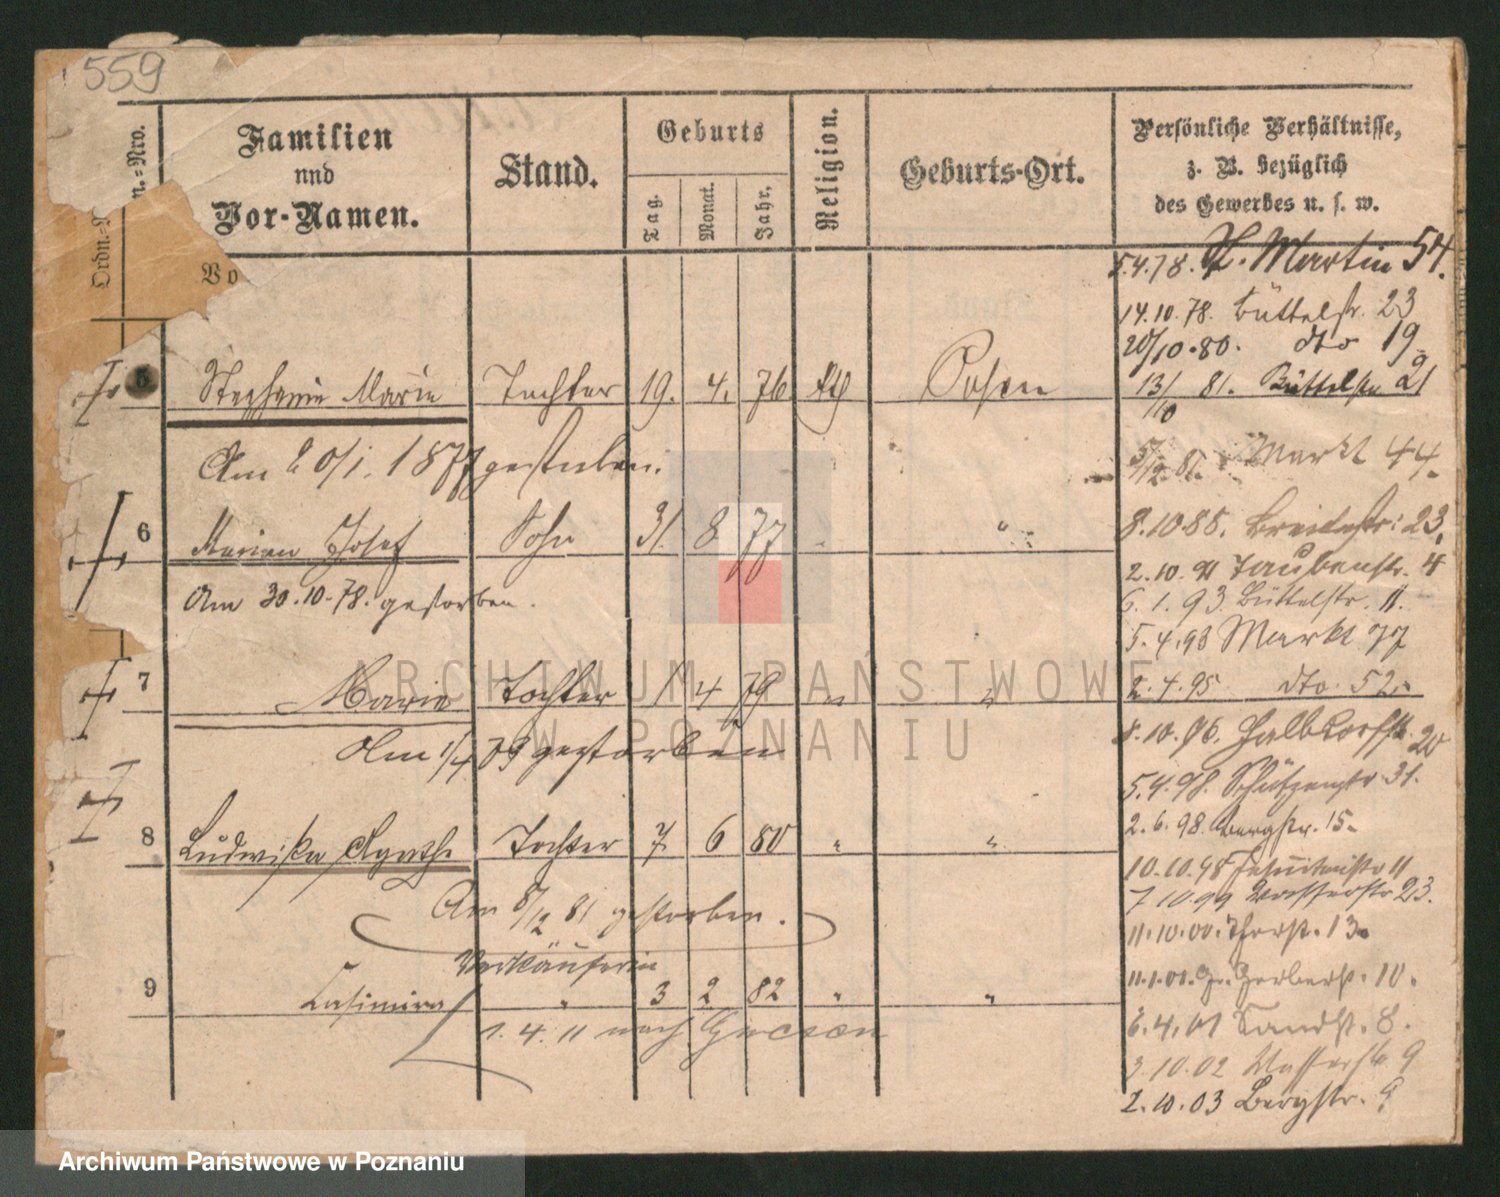 559
Ordn.-N
n.-Nro.
Familien
und
Vor-Namen.
Vo
Stand.
Geburts
Tag.
Monat.
Jahr.
Religion.
Geburts-Ort.
Persönliche Verhältnisse,
z. B. bezüglich
des Gewerbes u. s. w.
5.4.78. St. Martin 54.
14.10.78. Büttelstr. 23
20/10.80. dto 19
5 Stephanie Marie Tochter 19. 4. 76 kth Posen
13/10 81. Büttelstr 21
Am 20/1. 1877 gestorben.
5/12 81. Markt 44.
6 Marian Josef Sohn 31. 8 77 "
8.10.88. Breitestr: 23.
2.10.91 Taubenstr. 4
Am 30.10.78. gestorben.
6.1.93. Büttelstr. 11.
5.4.93 Markt 77
7 Marie Tochter 1 4 79 " "
2.4.95 dto. 52.
Am 1/4 79 gestorben
8.10.96. Halbdorfstr. 20
5.4.98. Schützenstr. 31.
8 Ludwika Agathe Tochter 7 6 80 " "
2.6.98 Bergstr. 15.
10.10.98 Jesuitenstr 11
7.10.99 Wasserstr 23.
Am 8/12 81 gestorben.
11.10.00. Thorst. 13a
Verkäuferin
9 Casimira " 3 2 82 " "
11.1.01. Gr. Gerberst. 10.
1.4.11 nach Gnesen
6.4.01 Sandst. 8.
3.10.02 Wasserstr 9
2.10.03 Bergstr. 9
ARCHIWUM PAŃSTWOWE
W POZNANIU
Archiwum Państwowe w Poznaniu